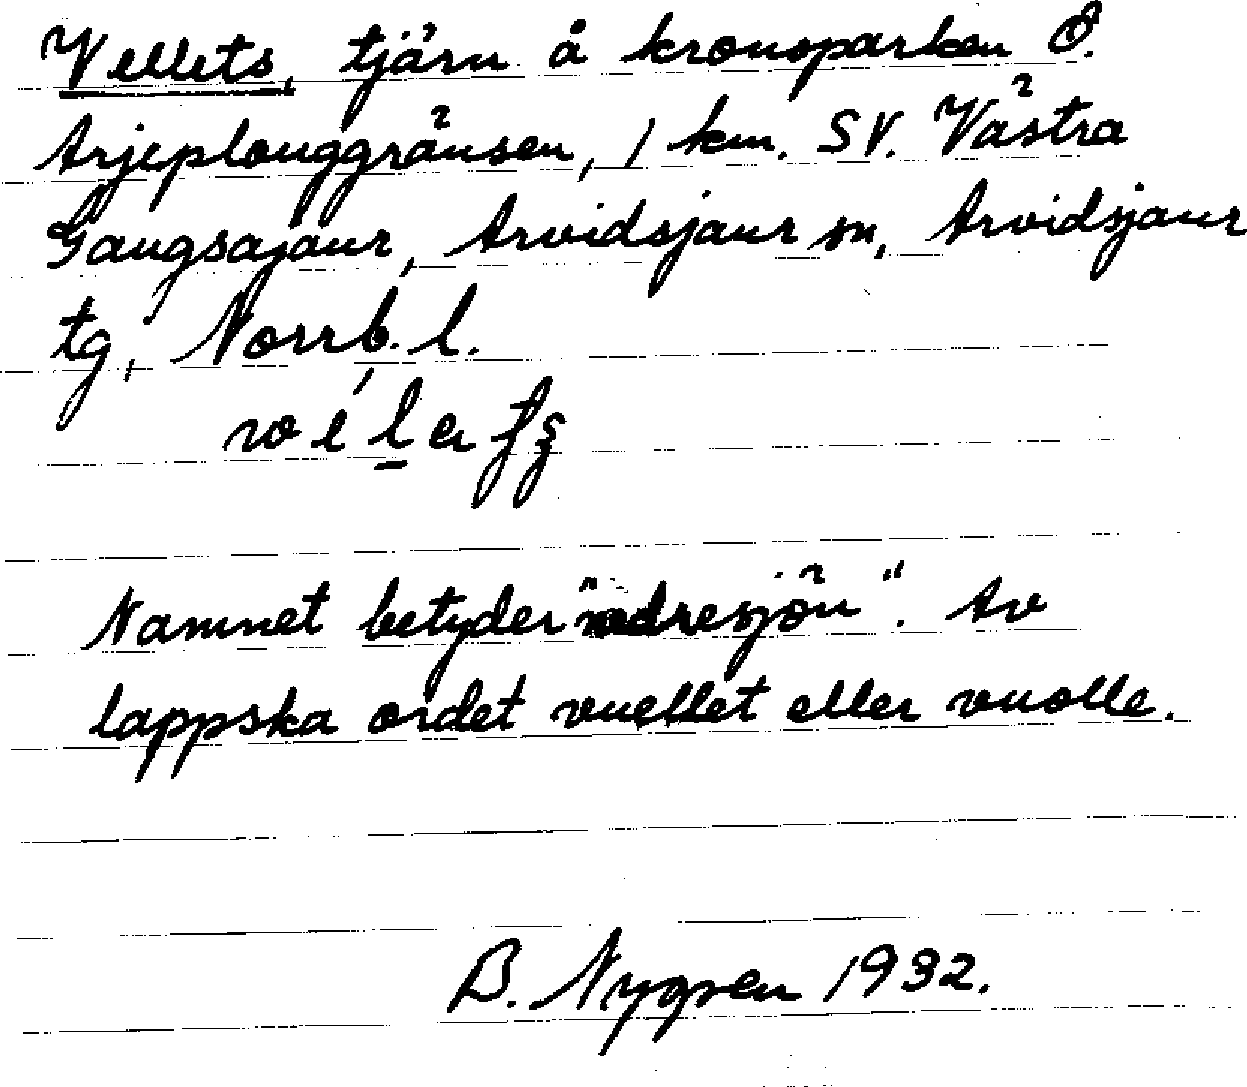 Vellets, tjärn å kronoparken Ö.
Arjeplouggränsen, 1 km. SV. Västra
Gaugsajaur, Arvidsjaur sn, Arvidsjaur
tg, Norrb. l.
Namnet betyder "nedresjön". Av
lappska ordet vuellet eller vuolle.
B. Nygren 1932.